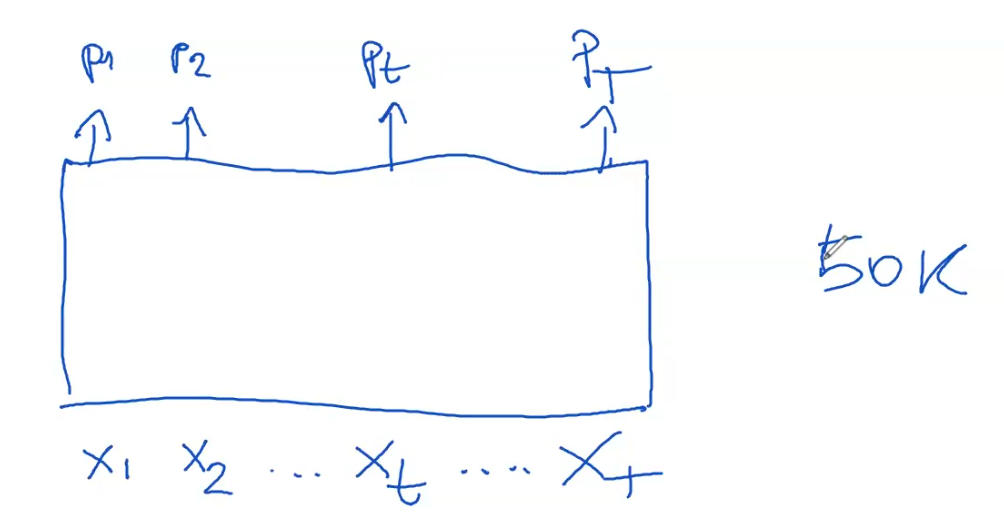 p1 p2 pt pT
50K
x1 x2 ... xt .... xT